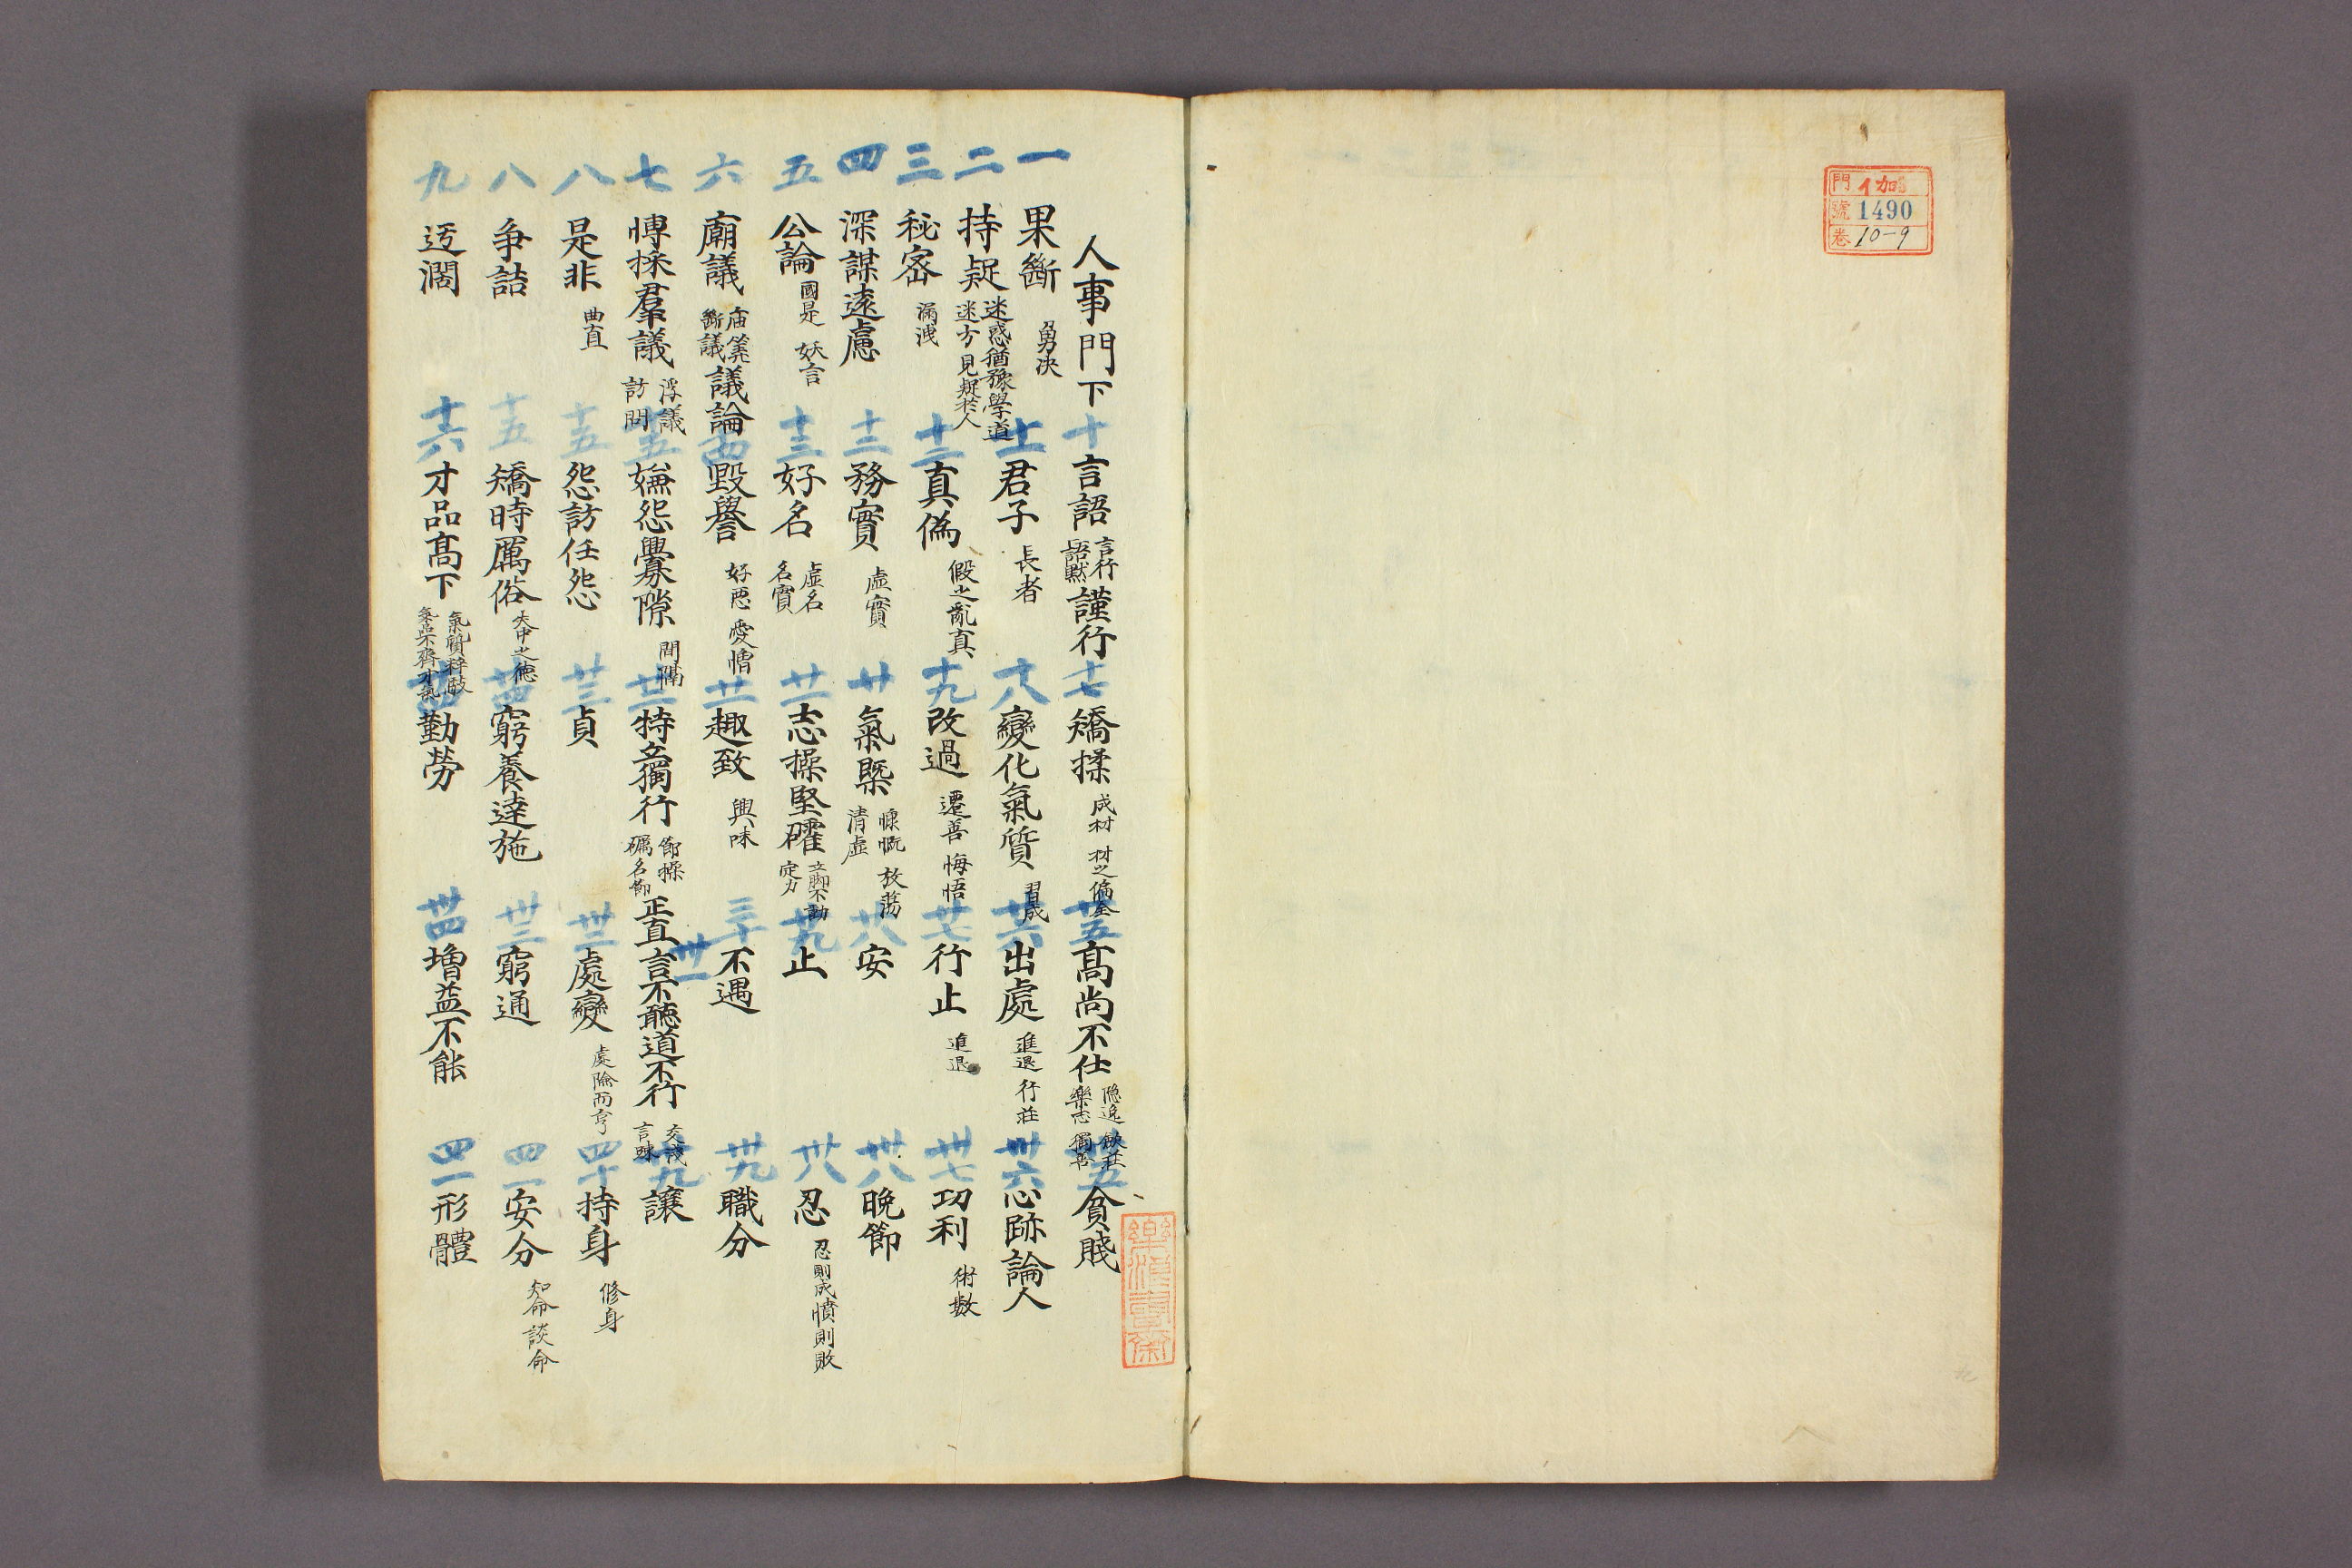 門 伽
號 1490
卷 10-9
人事門下
一 果斷 勇決
二 持疑 迷惑猶豫學道 迷方見疑於人
三 秘密 漏洩
四 深謀遠慮
五 公論 國是 妖言
六 廟議 庙筭 斷議 議論
七 愽採羣議 浮議 訪問
八 是非 曲直
八 争詰
九 迃濶
十 言語 言行 語默 謹行
十一 君子 長者
十二 真偽 假之亂真
十三 務實 虛實
十三 好名 虛名 名實
十四 毀譽 好惡 愛憎
十五 嫌怨釁隙 間隔
十五 怨訪任怨
十五 矯時厲俗
十六 才品高下 氣質粹駁 氣品不齊才氣
十七 矯揉 成材 材之偏全
十八 變化氣質 習成
十九 改過 遷善 悔悟
廿 氣槩 慷慨 放蕩 清虛
廿一 志操堅確 立脚不動 定力
廿一 趣致 興味
廿二 特立獨行 節操 礪名節 正直
廿三 貞
廿四 窮養達施
廿四 勤勞
廿五 高尚不仕 隱逸 樂志 獨善
廿六 出處 進退 行莊
廿七 行止 進退
廿八 安
廿九 止
三十 不遇
卅一 言不聽道不行 交淺 言疎
卅二 處變 處險而亨
卅三 窮通
卅四 增益不能
卅五 貧賤
卅六 心跡論人
卅七 功利 術數
卅八 晚節
卅八 忍 忍則成憤則敗
卅九 職分
卅九 讓
四十 持身 修身
四一 安分 知命 談命
四一 形體